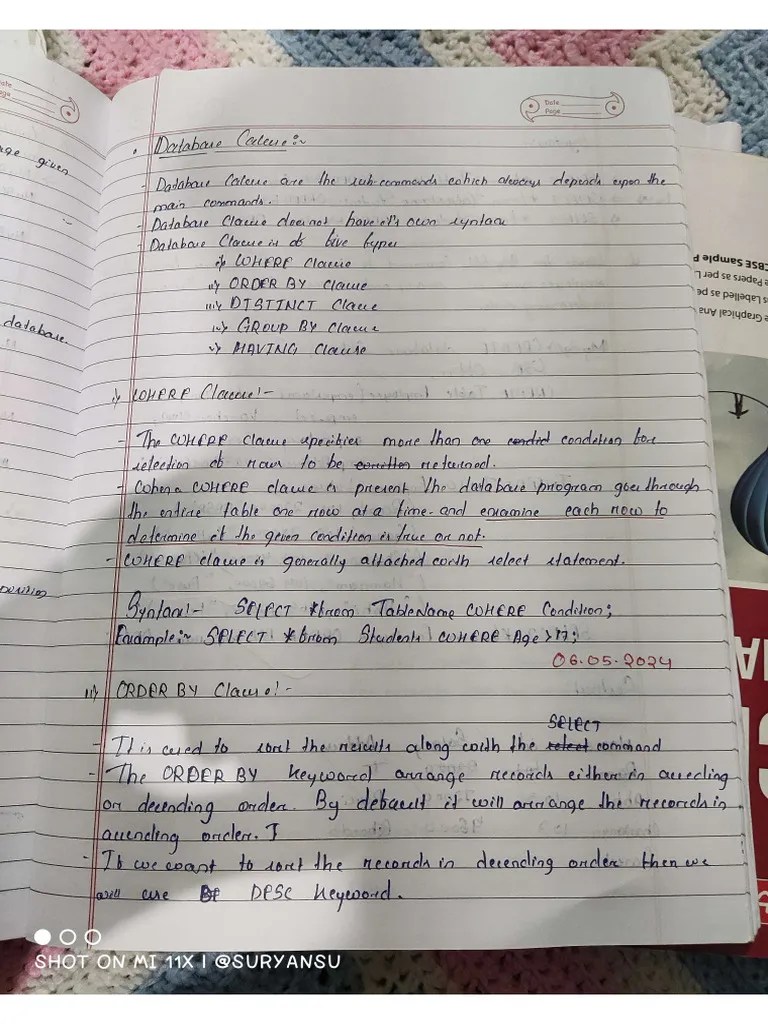 Date
Page
Date
Page
ge given
database.
• Database Caluse:~
- Database Caluse are the sub-commands which always depends upon the
main commands.
- Database Clause does not have it's own syntax
- Database Clause is of five types
i) WHERE Clause
ii) ORDER BY Clause
iii) DISTINCT Clause
iv) GROUP BY Clause
v) HAVING Clause
i) WHERE Clause!-
- The WHERE clause specifies more than one condition for
selection of rows to be written returned.
- When a WHERE clause is present the database program goes through
the entire table one row at a time and examine each row to
determine if the given condition is true or not.
- WHERE clause is generally attached with select statement.
Syntax!- SELECT * from TableName WHERE Condition;
Example:~ SELECT * from Students WHERE Age > 17;
06.05.2024
ii) ORDER BY Clause!-
SELECT
- It is used to sort the results along with the select command
- The ORDER BY keyword arrange records either in ascending
or decending order. By default it will arrange the records in
ascending order. I
- If we want to sort the records in decending order then we
will use DESC keyword.
CBSE Sample P
e Papers as per L
s Labelled as pe
e Graphical Ana
SHOT ON MI 11X | @SURYANSU